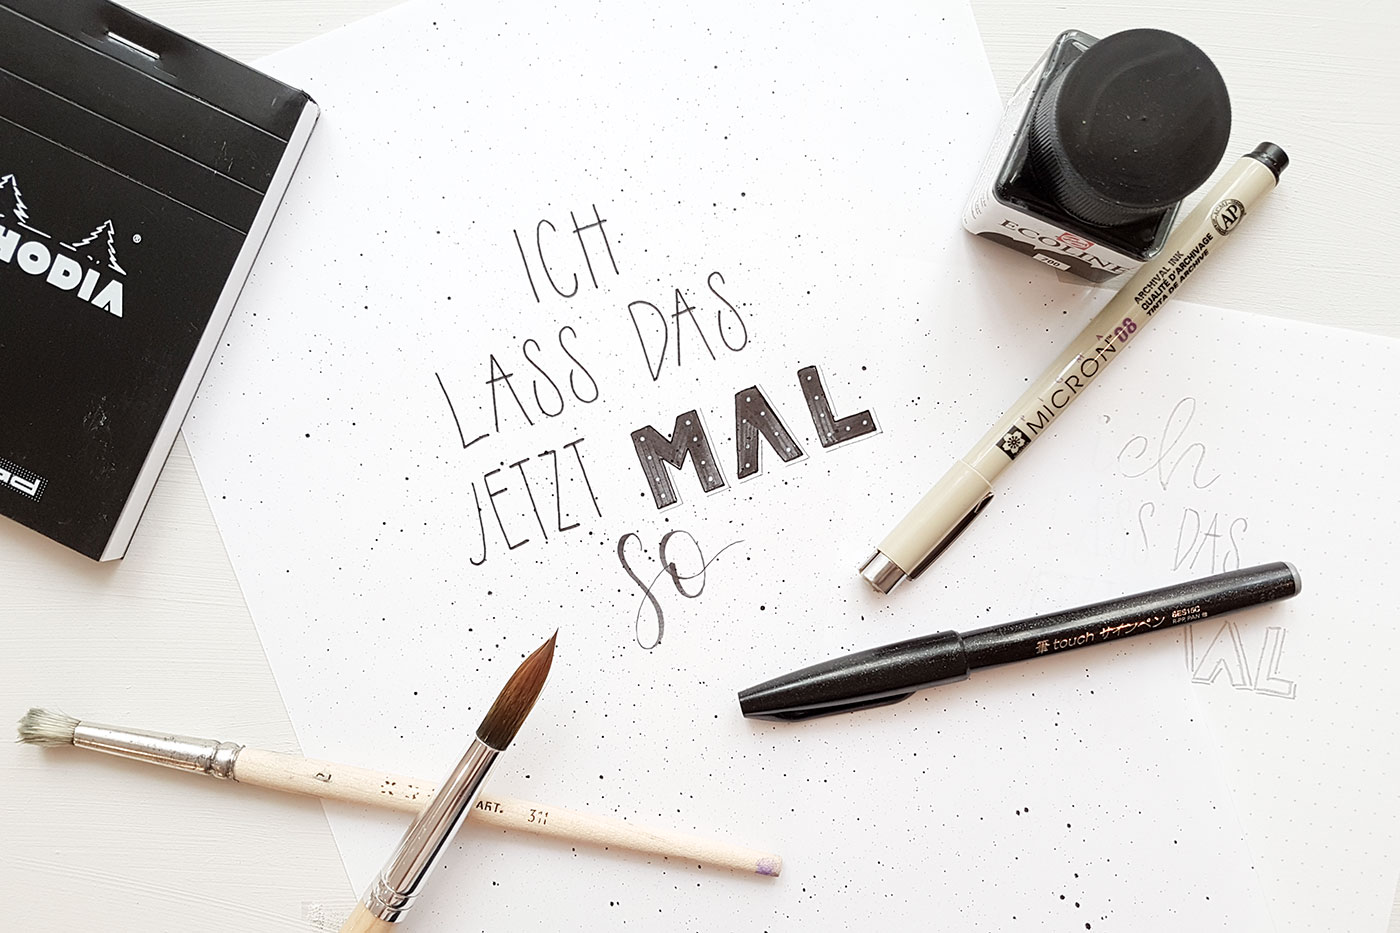 ICH
LASS DAS
JETZT MAL
SO
HODIA®
ECOLINE
700
MICRON™ 08
ARCHIVAL INK
QUALITÉ D'ARCHIVAGE
TINTA DE ARCHIVE
AP
touch サインペン
SES15C
ich
DAS
AL
ART. 311